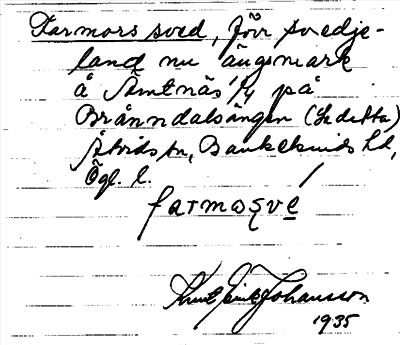 Farmors sved, förr svedje-
land nu ängsmark
å Ämtnäs 1/4 på
Bränndalsängen (Se detta)
Åtvids sn, Bankekinds hd,
Ögl. l.
farmosvé
Knut Emil Johansson
1935